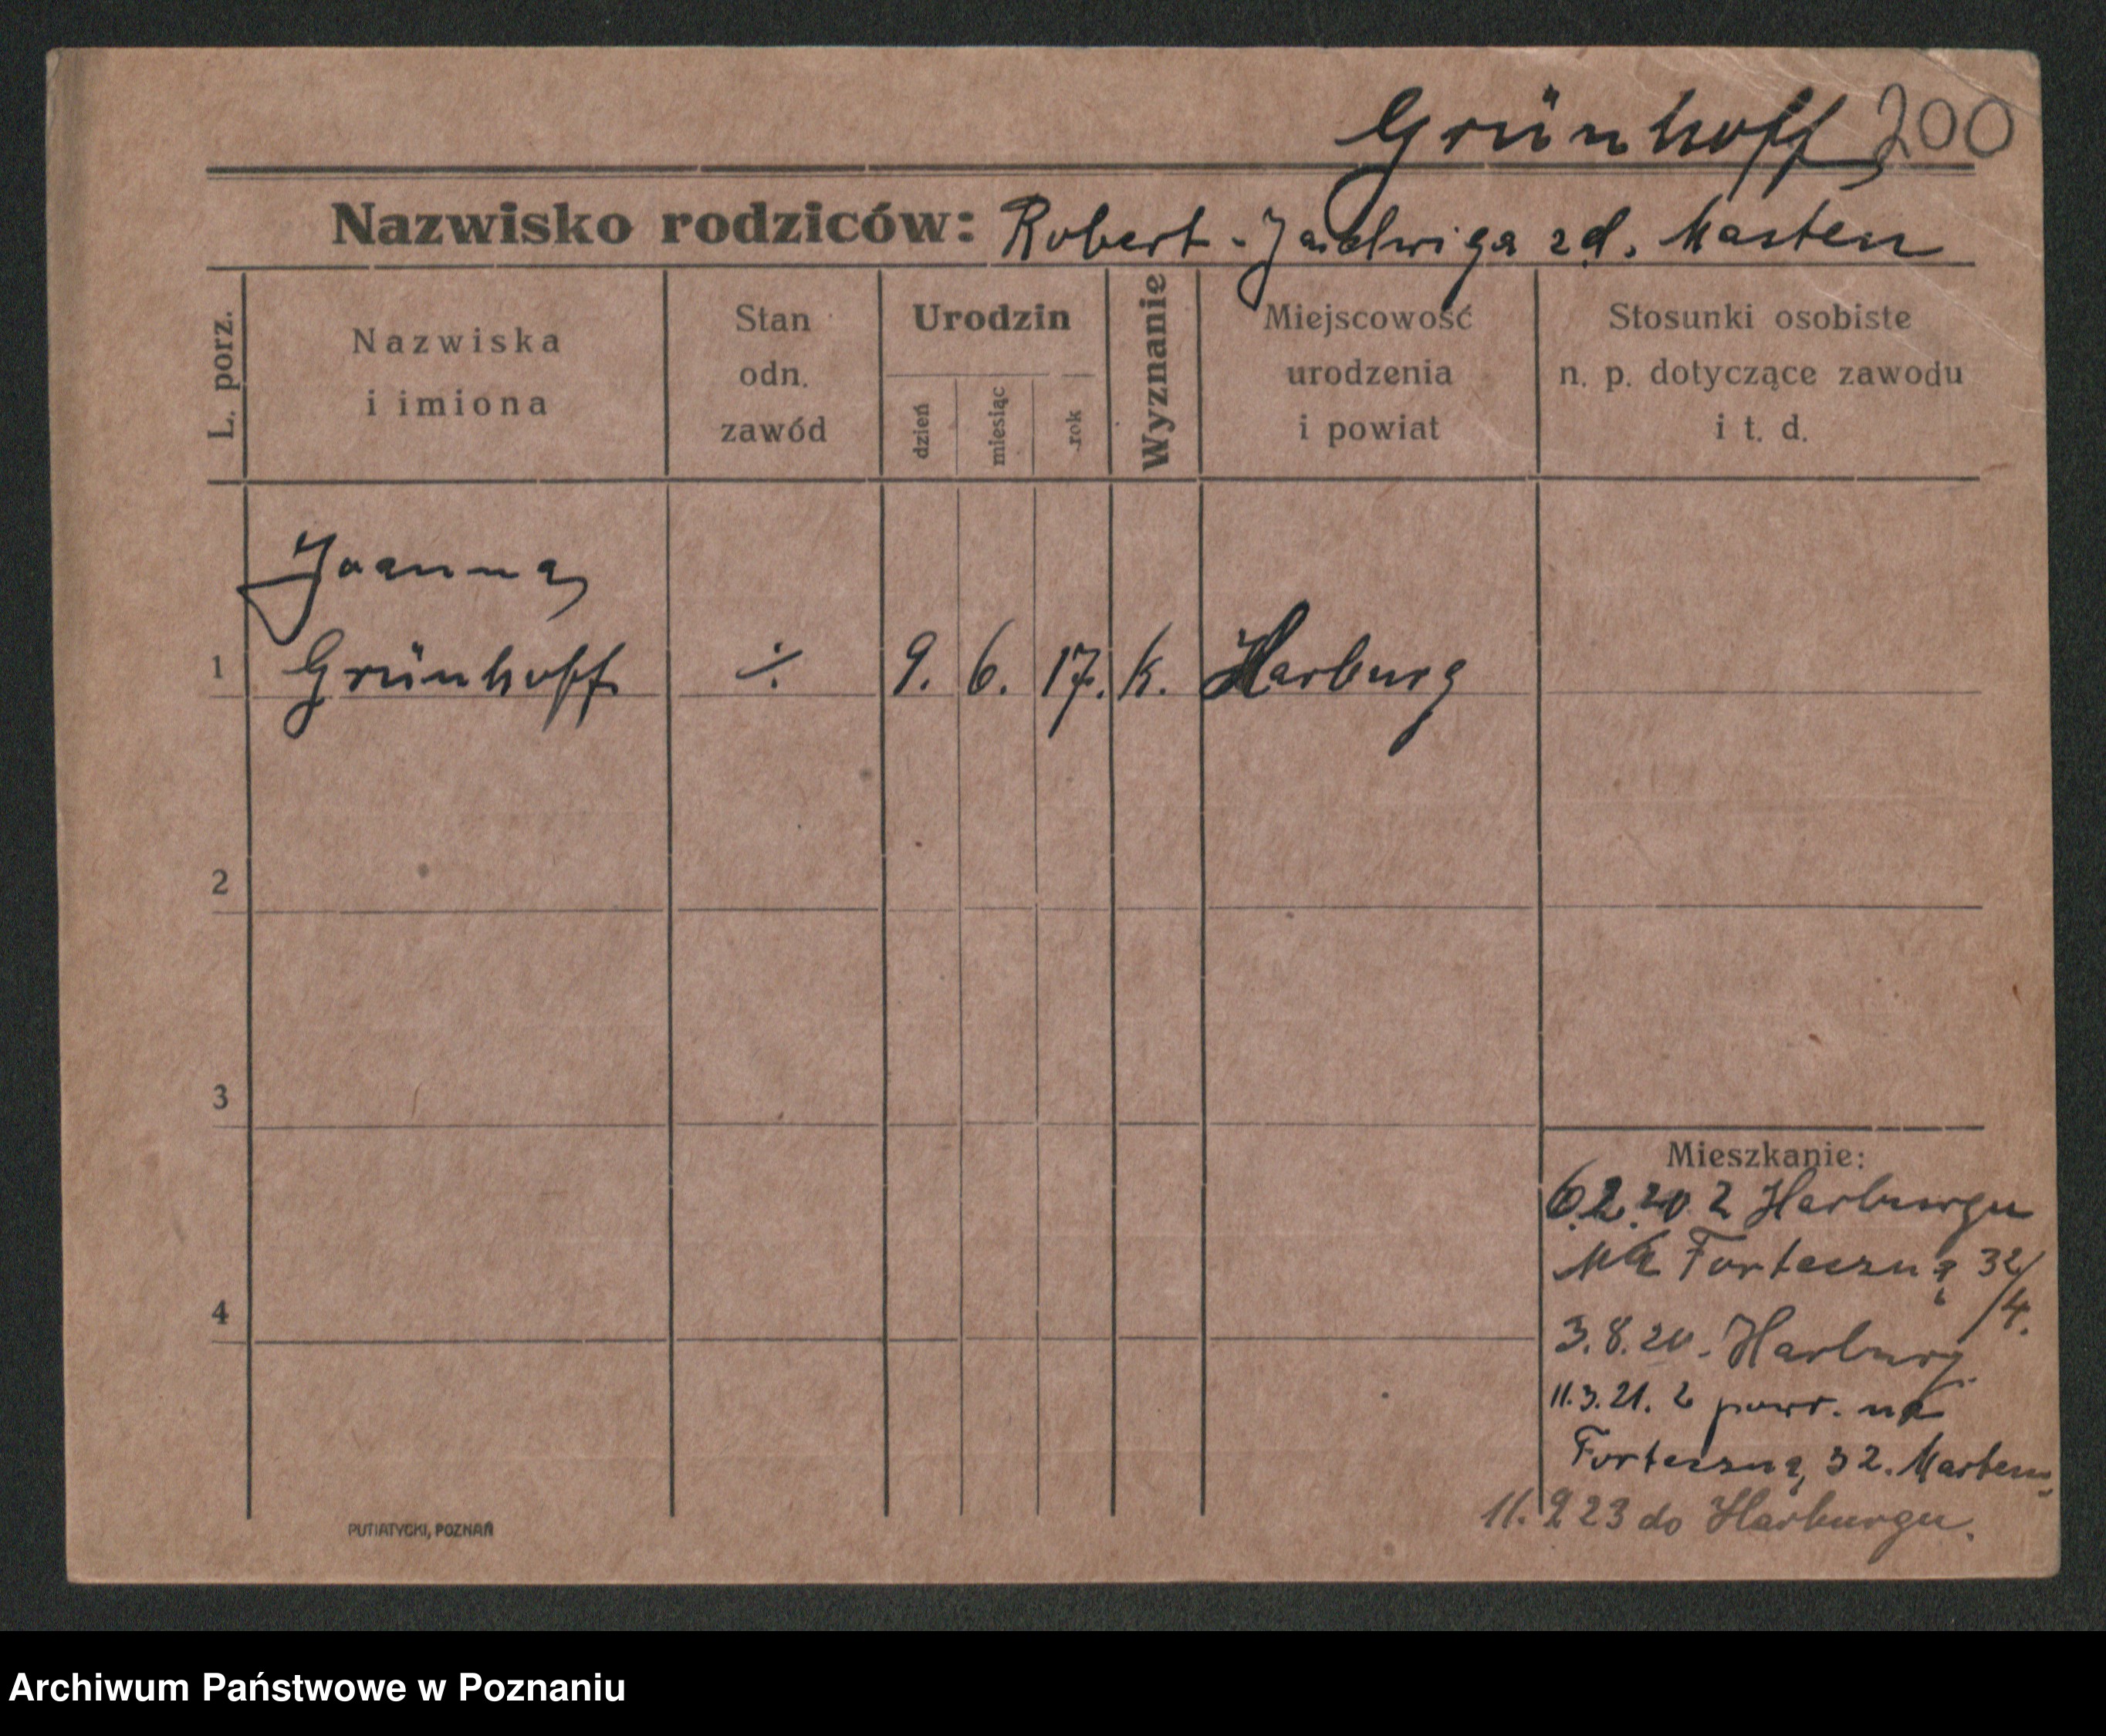 Grünhoff, 200
Nazwisko rodziców: Robert - Jadwiga zd. Marten
L. porz.
Nazwiska
i imiona
Stan
odn.
zawód
Urodzin
dzień
miesiąc
rok
Wyznanie
Miejscowość
urodzenia
i powiat
Stosunki osobiste
n. p. dotyczące zawodu
i t. d.
Joanna
1 Grünhoff ·/. 9. 6. 17. k. Harburg
2
3
4
Mieszkanie:
6.2.20 z Harburgu
na Forteczną 32/4.
3.8.20. Harburg.
11.3.21. z powr. na
Forteczną, 32. Marten
11.2 23 do Harburgu.
PUTIATYCKI, POZNAŃ
Archiwum Państwowe w Poznaniu